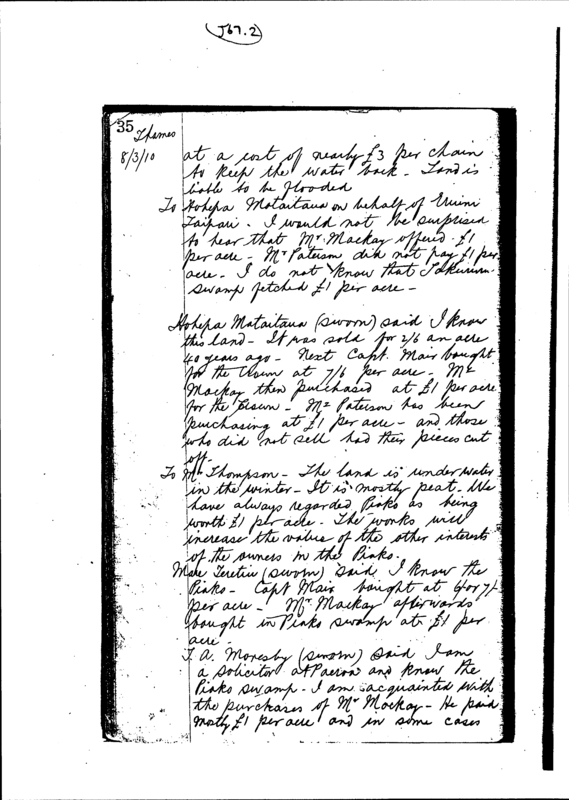 J67.2
35
Thames
8/3/10
at a cost of nearly £3 per chain
to keep the water back - Land is
liable to be flooded
To Hohepa Mataitaua on behalf of
Taipari. I would not be surprised
to hear that Mr Mackay offered £1
per acre - Mr Paterson did not pay £1 per
acre - I do not know that
swamp fetched £1 per acre -
Hohepa Mataitaua (sworn) said I know
this land - It was sold for 2/6 an acre
40 years ago - Next Capt. Mair bought
for the Crown at 7/6 per acre - Mr
Mackay then purchased at £1 per acre
for the Crown - Mr Paterson has been
purchasing at £1 per acre - and those
who did not sell had their pieces cut
off -
To Mr Thompson - The land is under water
in the winter - It is mostly peat. We
have always regarded Piako as being
worth £1 per acre. The works will
increase the value of the other interests
of the owners in the Piako.
Mare Teretiu (sworn) said I know the
Piako - Capt Mair bought at 6/ or 7/
per acre - Mr Mackay afterwards
bought in Piako swamp at £1 per
acre -
T. A. Moresby (sworn) said I am
a solicitor at Paeroa and know the
Piako swamp - I am acquainted with
the purchases of Mr Mackay - He paid
mostly £1 per acre and in some cases